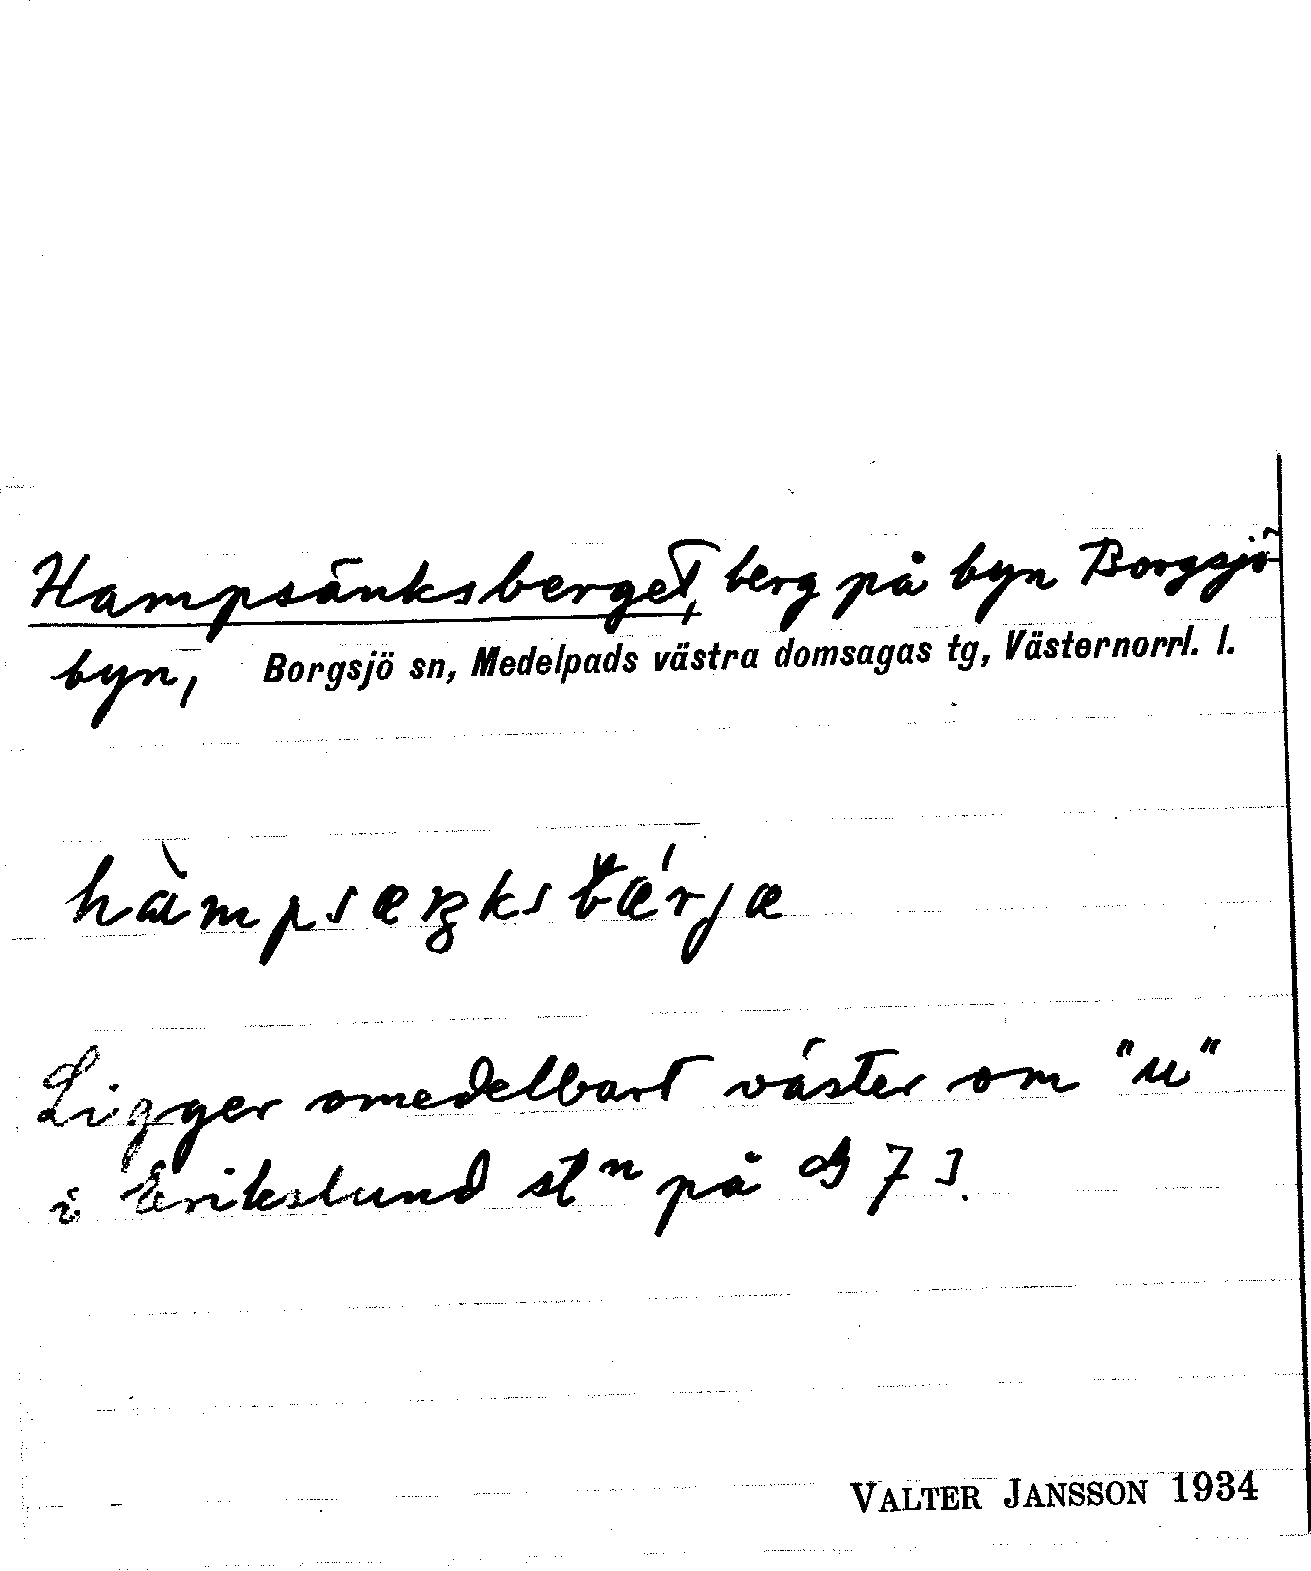 Hampsänksberget, berg på byn Borgsjö
byn, Borgsjö sn, Medelpads västra domsagas tg, Västernorrl. l.
hàmpsæŋksbǽrjæ
Ligger omedelbart väster om "u"
i Erikslund stn på
VALTER JANSSON 1934